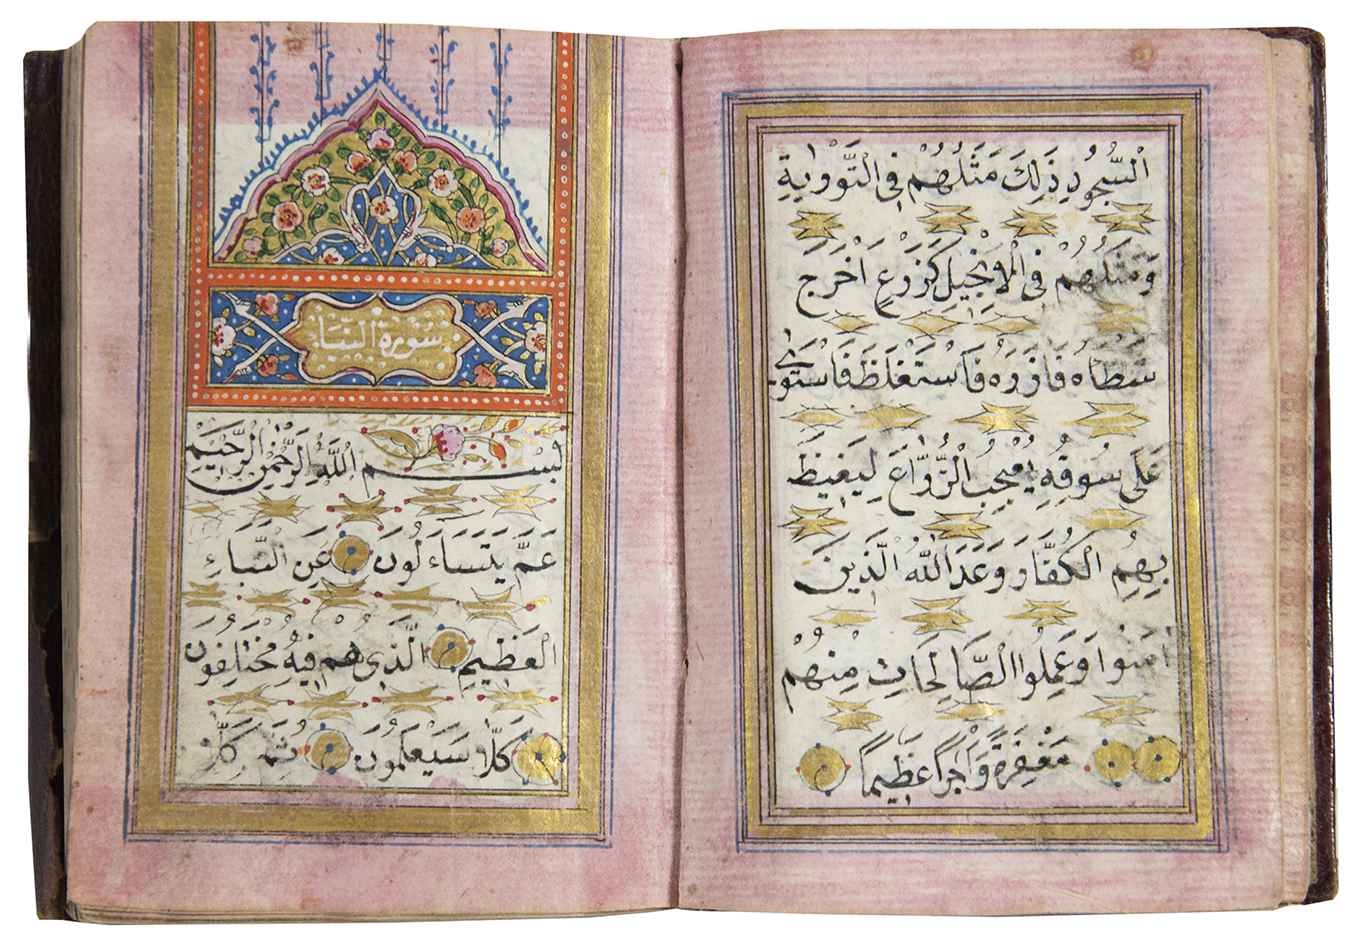 السُّجُودِ ذَلِكَ مَثَلُهُمْ فِي التَّوْرٰيةِ
وَمَثَلُهُمْ فِي الْاِنْجِيلِ كَزَرْعٍ اَخْرَجَ
شَطْاَهُ فَاٰزَرَهُ فَاسْتَغْلَظَ فَاسْتَوٰى
عَلٰى سُوقِهِ يُعْجِبُ الزُّرَّاعَ لِيَغِيظَ
بِهِمُ الْكُفَّارَ وَعَدَ اللّٰهُ الَّذِينَ
اٰمَنُوا وَعَمِلُوا الصَّالِحَاتِ مِنْهُمْ
مَغْفِرَةً وَاَجْرًا عَظِيمًا
سُورَةُ النَّبَأ
بِسْمِ اللّٰهِ الرَّحْمٰنِ الرَّحِيْمِ
عَمَّ يَتَسَاءَلُونَ عَنِ النَّبَاءِ
الْعَظِيمِ الَّذِى هُمْ فِيهِ مُخْتَلِفُونَ
كَلَّا سَيَعْلَمُونَ ثُمَّ كَلَّا